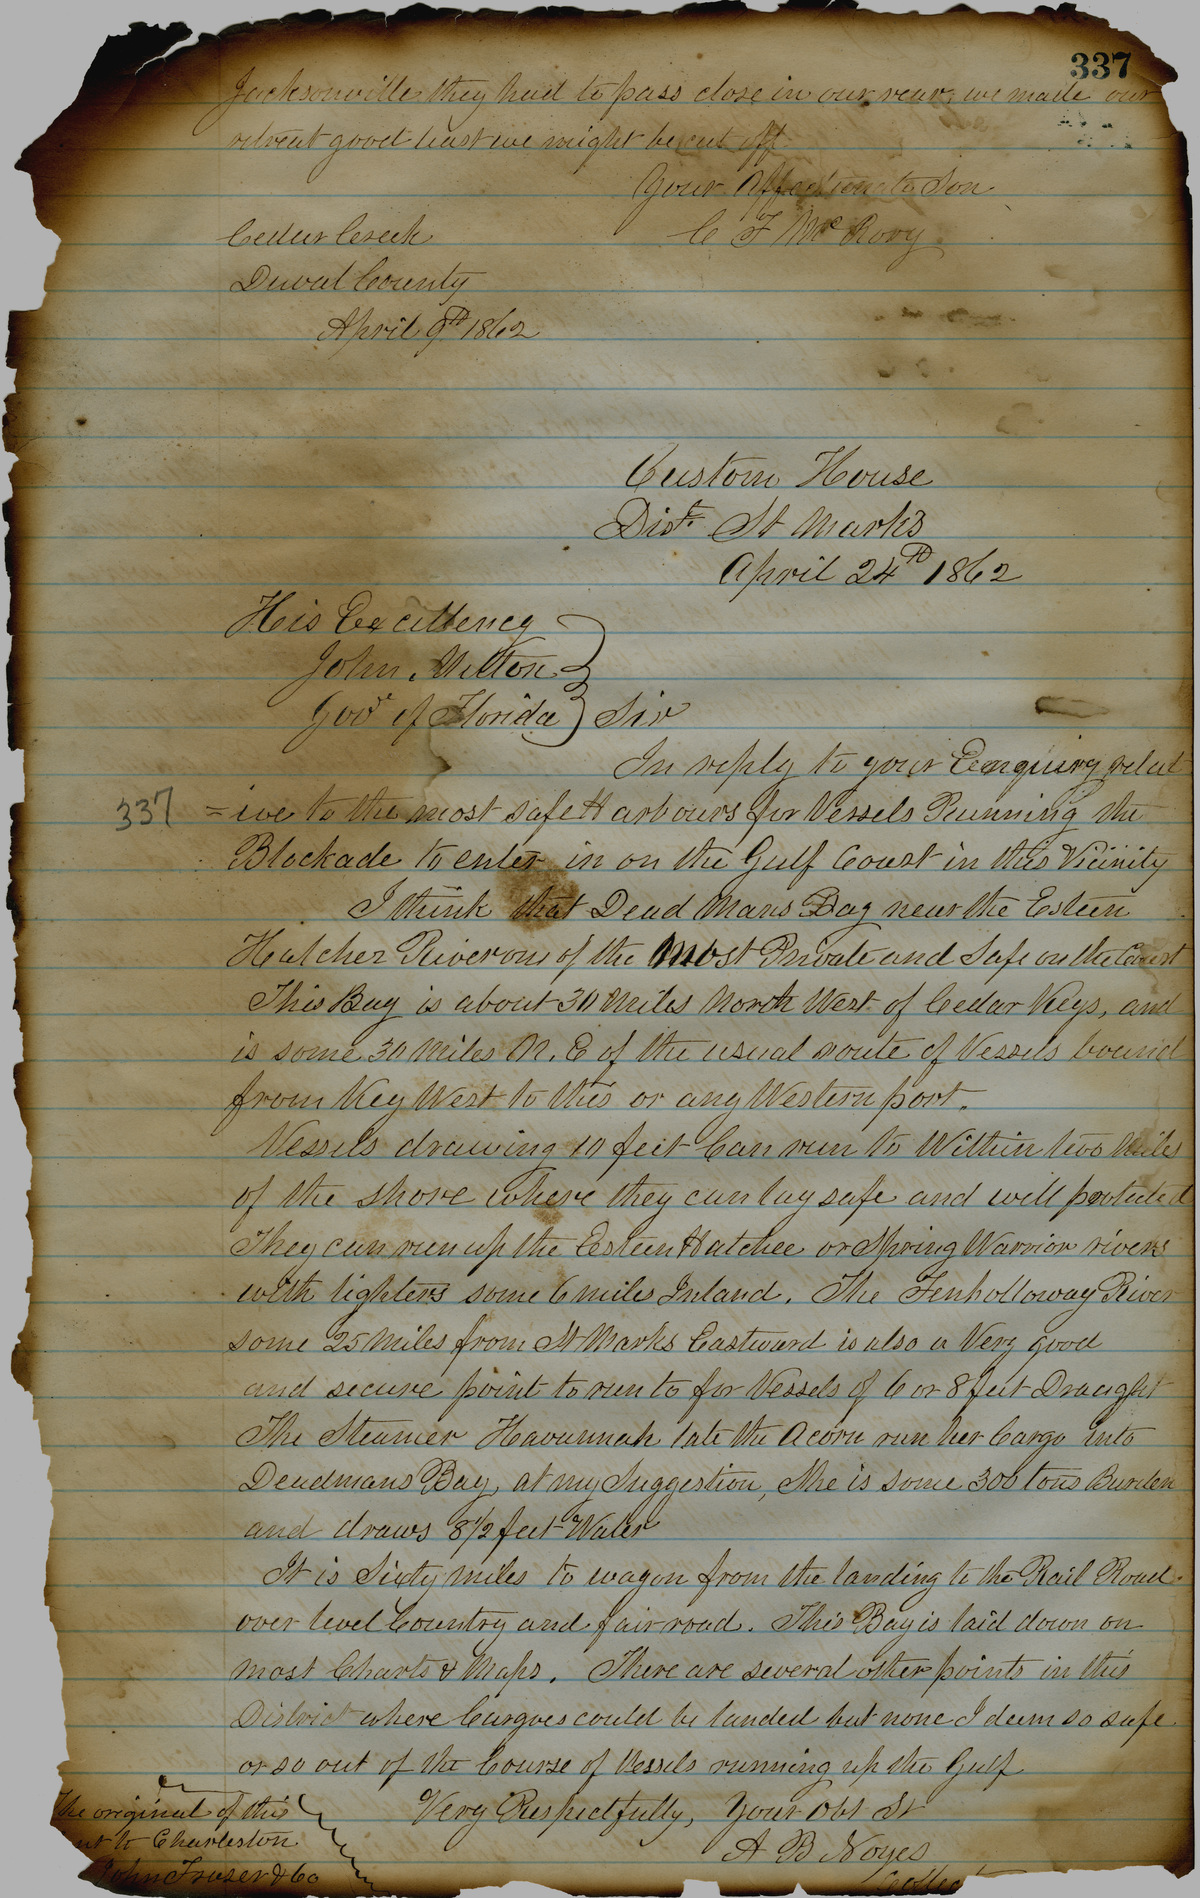 337
Jacksonville they had to pass close in our rear, we made our
retreat good least we might be cut off
Your Affectionate Son
C F McRory
Cedar Creek
Duval County
April 9th 1862
Custom House
Dist. St Marks
April 24th 1862
His Excellency
John Milton
Govr of Florida } Sir
In reply to your Enquiry relat
337
=ive to the most safe Harbours for Vessels Running the
Blockade to enter in on the Gulf Coast in this Vicinity
I think that Dead Mans Bay near the Esteen
Hatchee River one of the Most Private and Safe on the Coast
This Bay is about 30 Miles North West of Cedar Keys, and
is some 30 Miles N. E of the usual route of Vessels bound
from Key West to this or any Western port.
Vessels drawing 10 feet Can run to Within two Miles
of the shore where they can lay safe and will protected
They can run up the Esteen Hatchee or Spring Warrior rivers
with lighters some 6 miles Inland. The Finholloway River
some 25 Miles from St Marks Eastward is also a Very good
and secure point to run to for Vessels of 6 or 8 feet Draught
The Steamer Havannah late the Acorn run her Cargo into
Deadmans Bay, at my Suggestion, She is some 300 tons Burden
and draws 8 1/2 feet Water
It is Sixty miles to wagon from the landing to the Rail Road
over level Country and fair road. This Bay is laid down on
most Charts & Maps. There are several other points in this
District where Cargoes could be landed but none I deem so safe
or so out of the Course of Vessels running up the Gulf
Very Respectfully, Your Obt St
A B Noyes
Collect
The original of this
sent to Charleston
John Frazer & Co